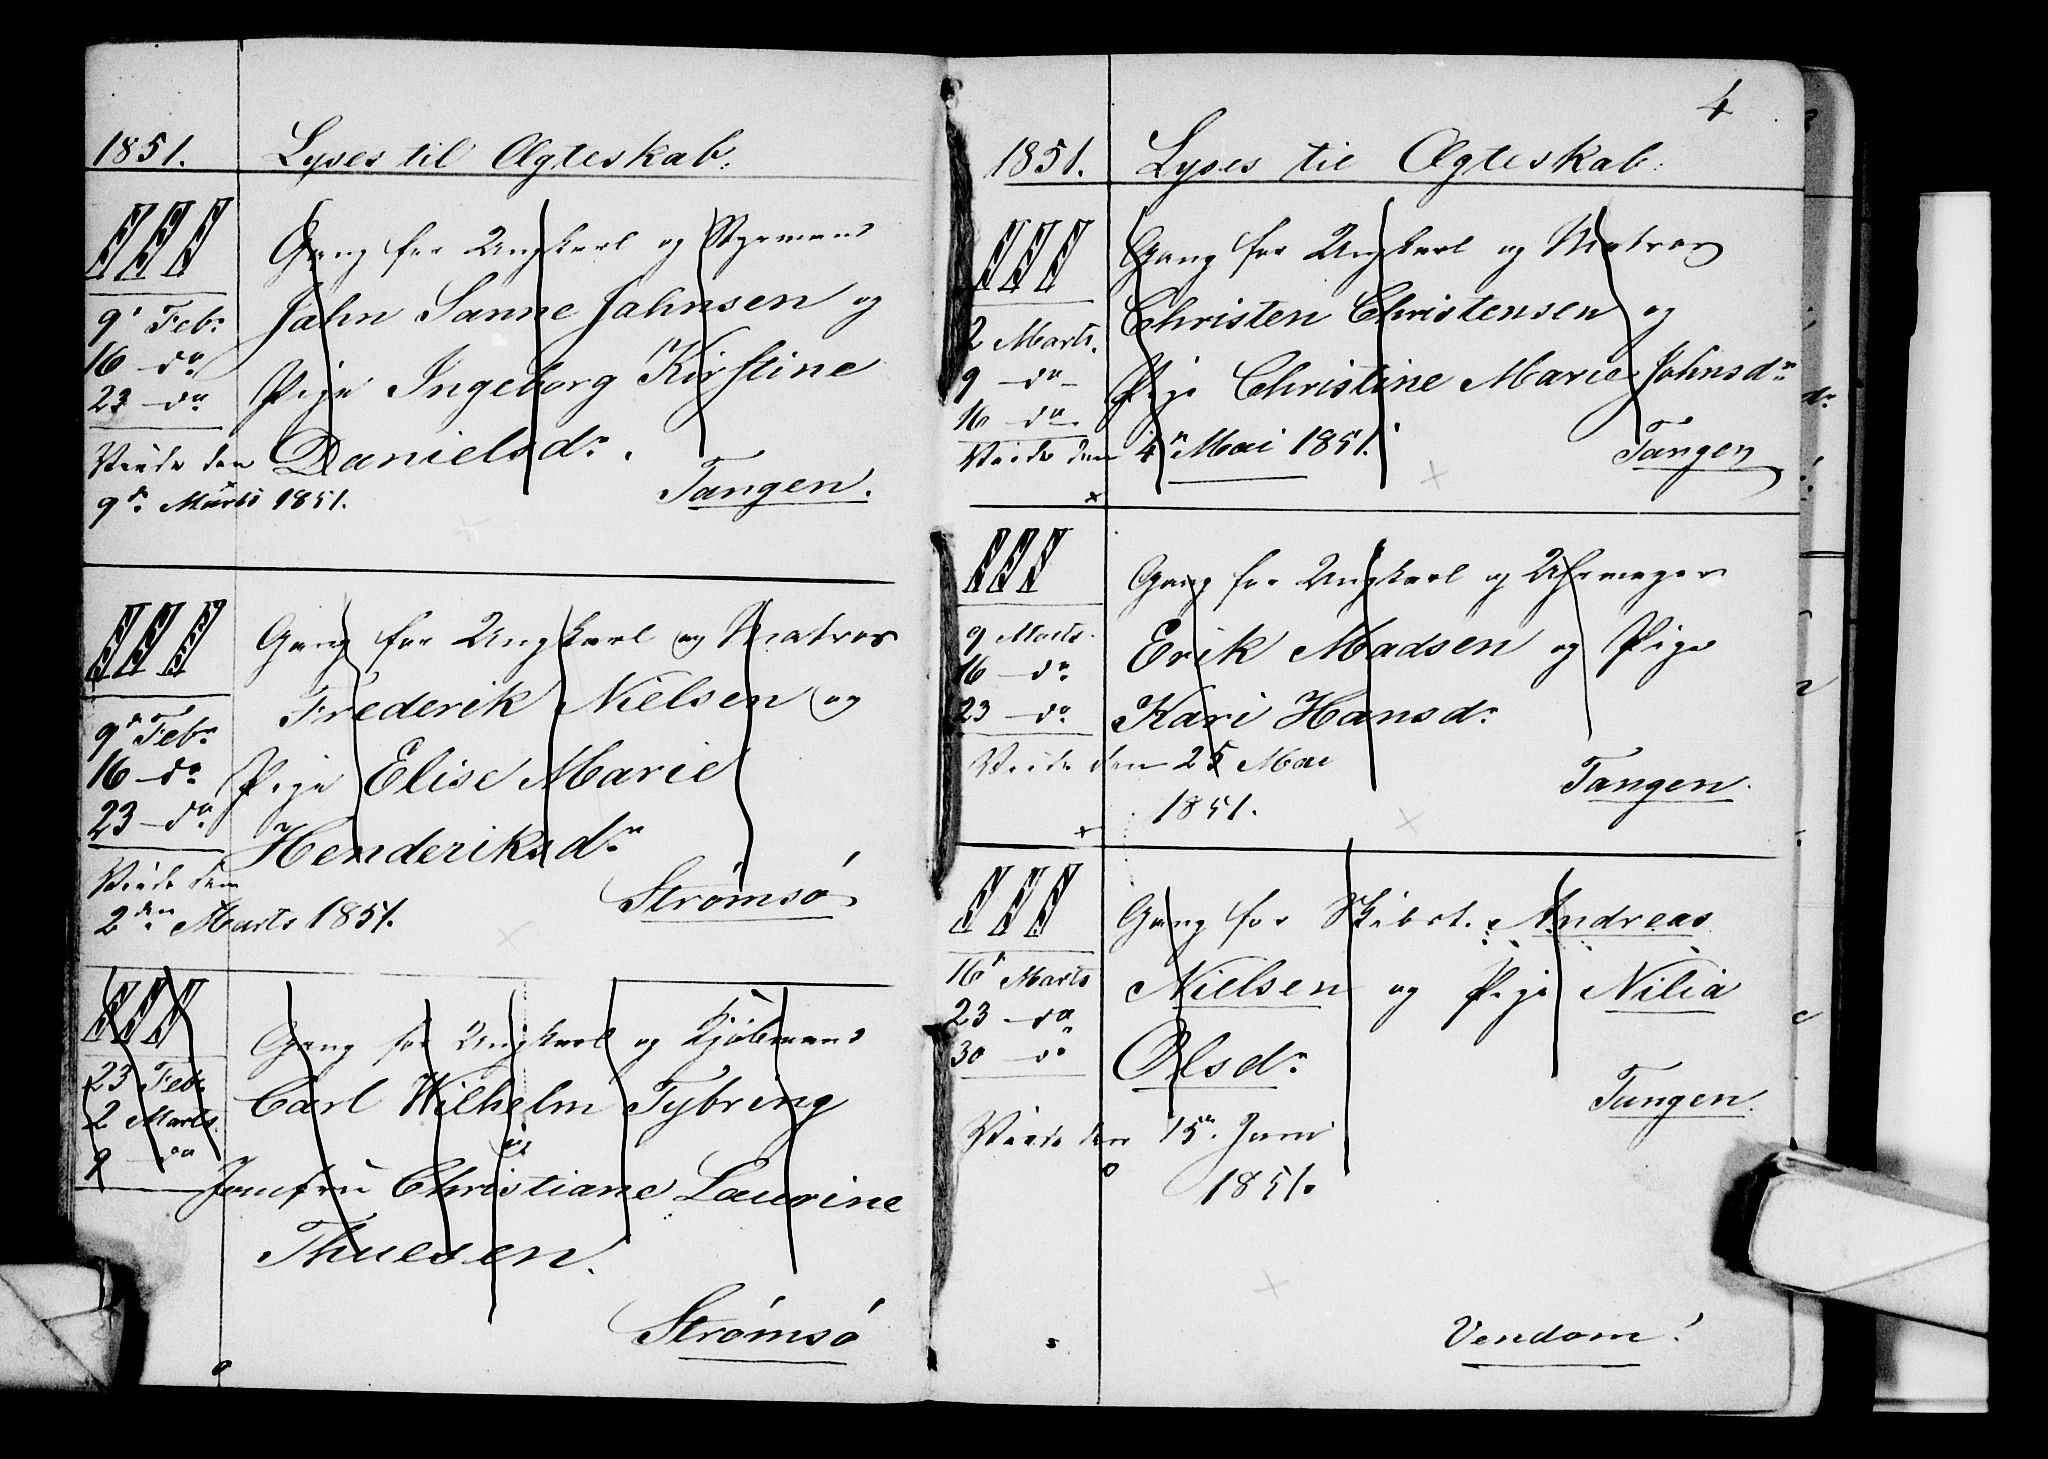 1851. Lyses til Ægteskab:
III Gang for Ungkarl og Styrmand
9' Feb. Jahn Sanne Jahnsen og
16 do
23 do Pige Ingeborg Kirstine
Viede den Danielsd.
9de Marts 1851. Tangen.
III Gang for Ungkarl og Matros
Frederik Nielsen og
9de Febr
16 do Pige Elise Marie
23 do
Henderiksdr
Viede den
2den Marts 1851. Strömsö
III Gang for Ungkarl og Kjöbmand
23 Feb. Carl Wilhelm Tybring
2 Marts og
9 do Jomfru Christiane Laurine
Thuesen.
Strömsö
4
1851. Lyses til Ægteskab:
III Gang for Ungkarl og Matros
2 Marts. Christen Christensen og
9 do
16 do Pige Christine Marie Johnsdr
Viede den 4de Mai 1851. Tangen
III Gang for Ungkarl og Uhrmager
9 Marts. Erik Madsen og Pige
16 do
23 do Kari Hansdr
Viede den 25 Mai
1851. Tangen.
III Gang for Skibst. Andreas
16' Marts Nielsen og Pige Nilia
23 do
30 do Olsdr
Tangen.
Viede den 15de Juni
1851.
Vendom!